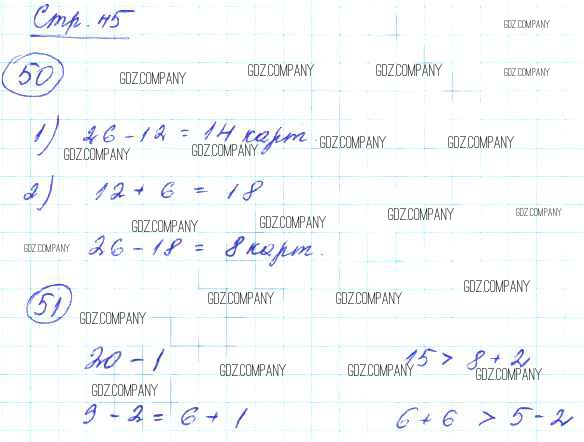 Стр. 45
GDZ.COMPANY
50
GDZ.COMPANY GDZ.COMPANY GDZ.COMPANY GDZ.COMPANY
1) 26 - 12 = 14 карт.
GDZ.COMPANY GDZ.COMPANY GDZ.COMPANY GDZ.COMPANY
2) 12 + 6 = 18
GDZ.COMPANY GDZ.COMPANY GDZ.COMPANY GDZ.COMPANY
26 - 18 = 8 карт.
GDZ.COMPANY
51
GDZ.COMPANY GDZ.COMPANY GDZ.COMPANY
GDZ.COMPANY
20 - 1 15 > 8 + 2
GDZ.COMPANY GDZ.COMPANY GDZ.COMPANY
GDZ.COMPANY
9 - 2 = 6 + 1 6 + 6 > 5 - 2